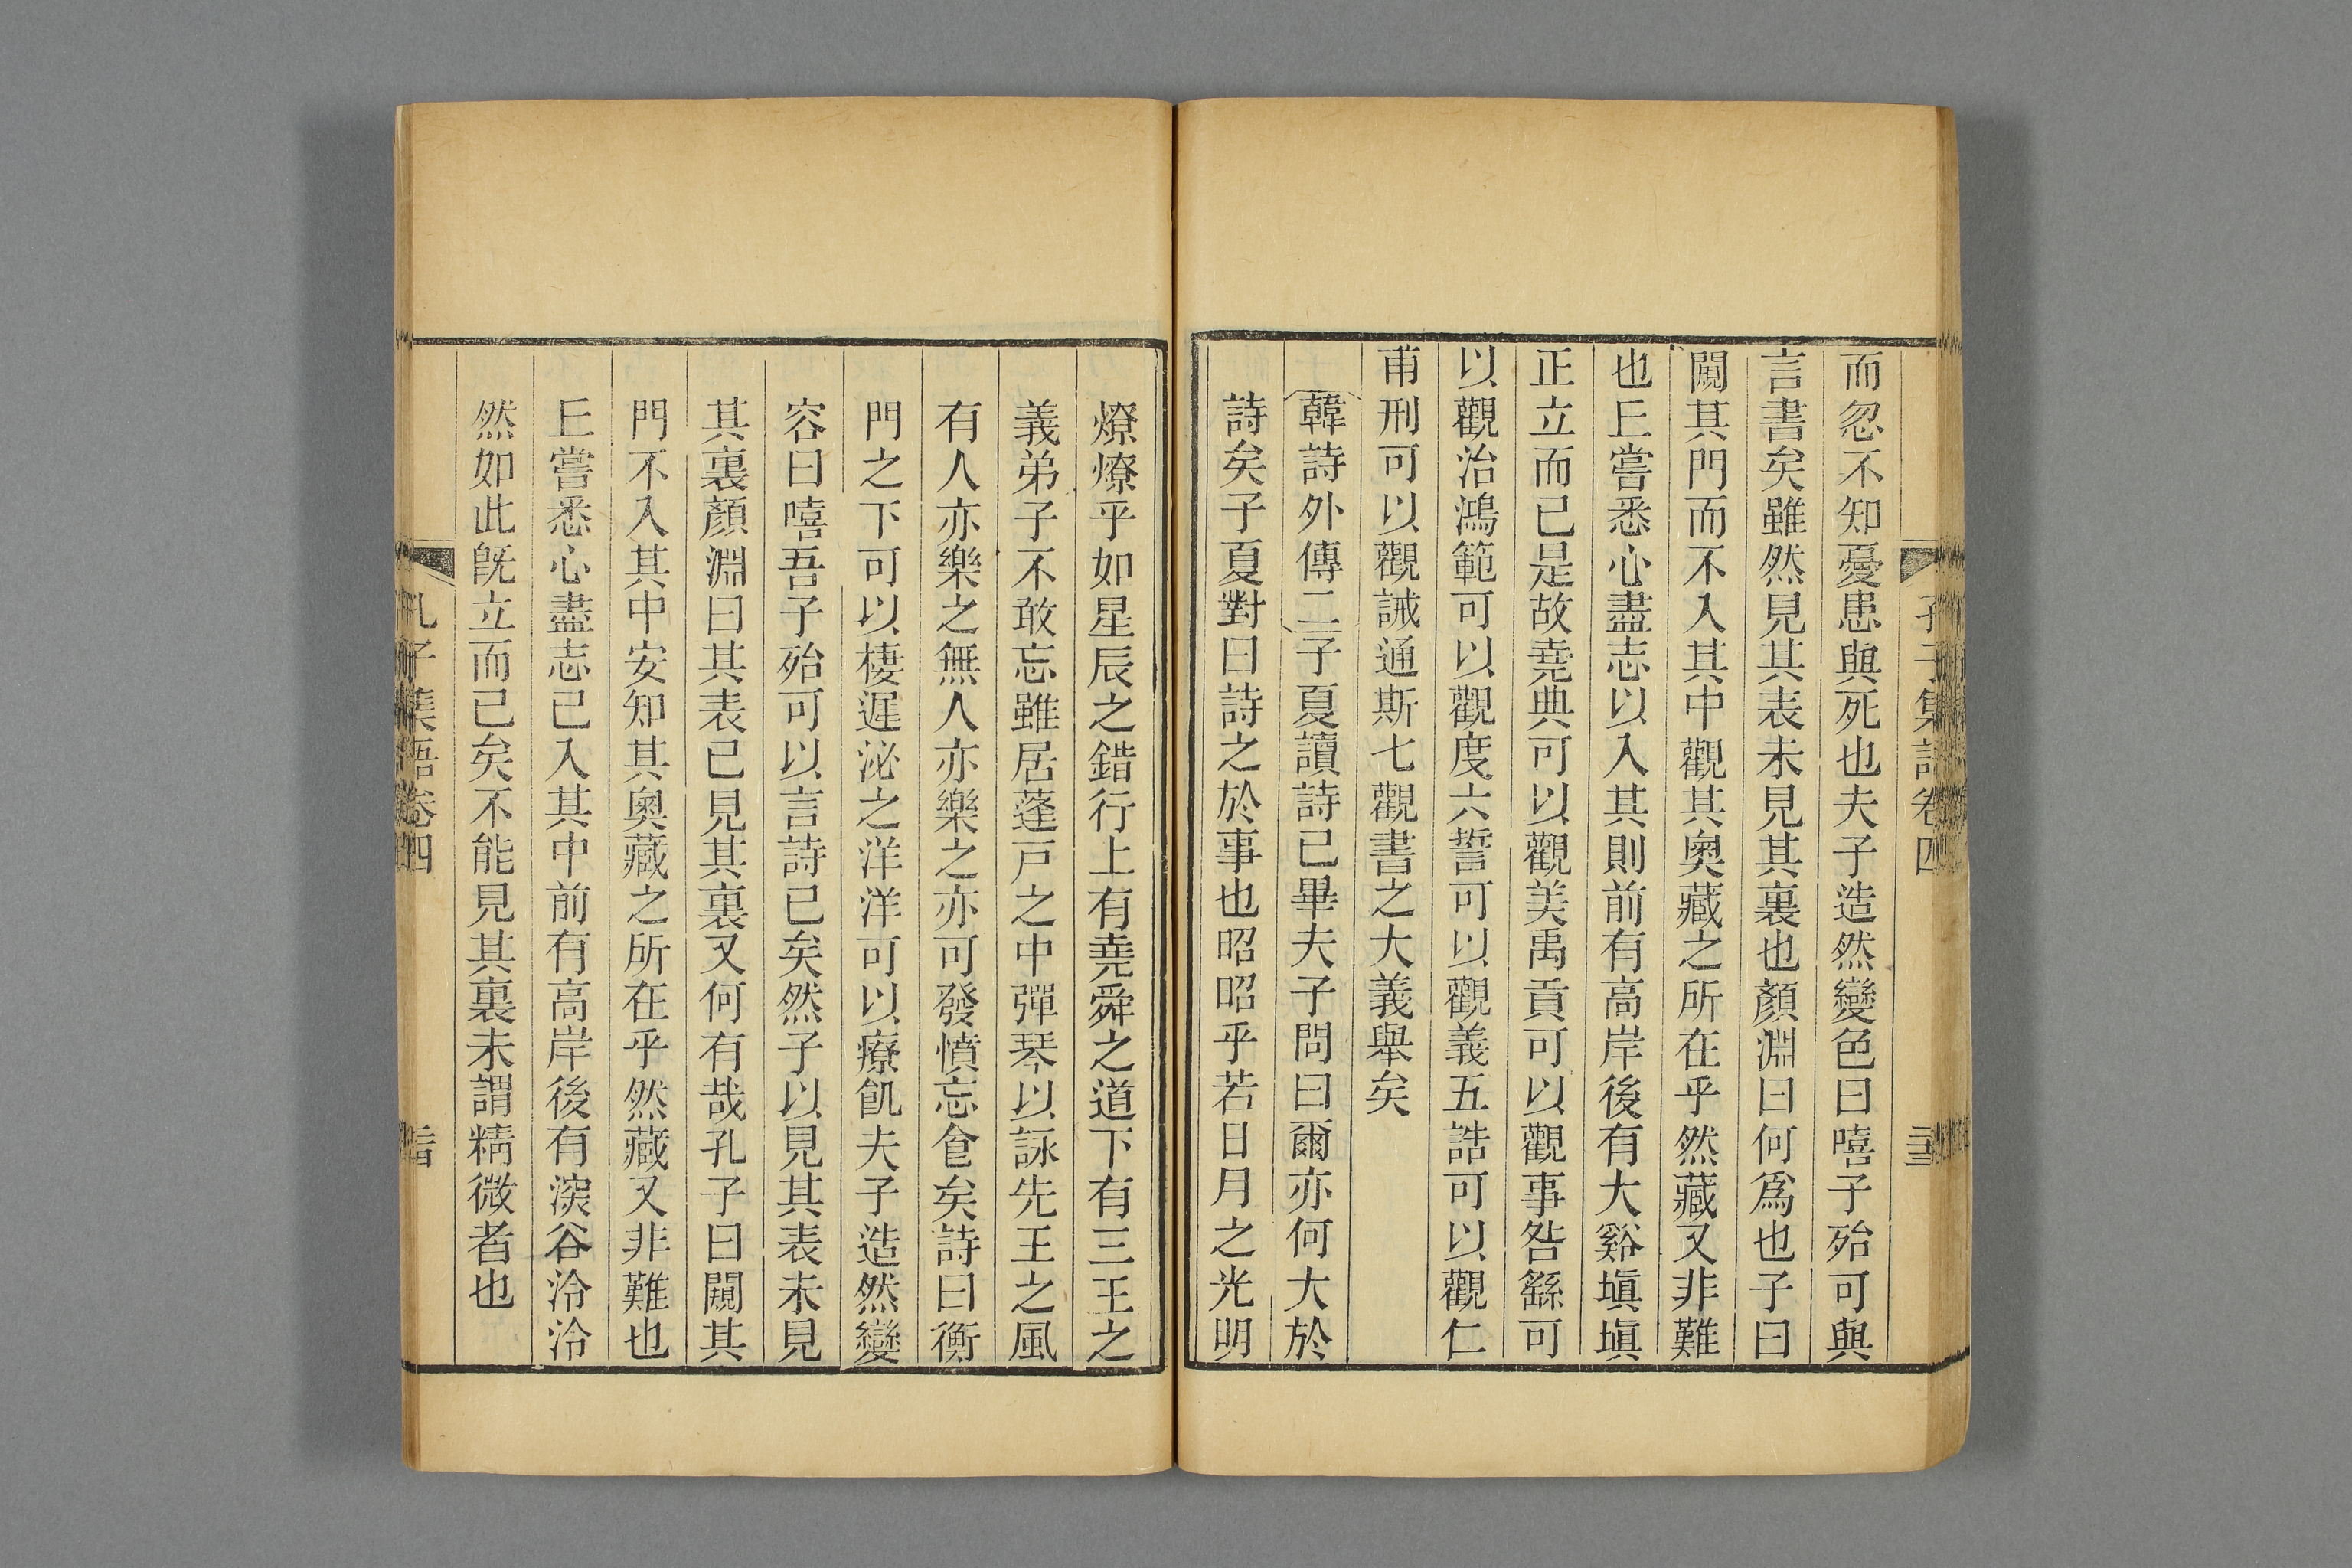 孔子集語卷四
而忽不知憂患與死也夫子造然變色曰嘻子殆可與
言書矣雖然見其表未見其裏也顏淵曰何爲也子曰
闚其門而不入其中觀其奧藏之所在乎然藏又非難
也𠀉嘗悉心盡志以入其則前有高岸後有大谿塡塡
正立而已是故堯典可以觀美禹貢可以觀事咎繇可
以觀治鴻範可以觀度六誓可以觀義五誥可以觀仁
甫刑可以觀誡通斯七觀書之大義舉矣
韓詩外傳二子夏讀詩已畢夫子問曰爾亦何大於
詩矣子夏對曰詩之於事也昭昭乎若日月之光明
燎燎乎如星辰之錯行上有堯舜之道下有三王之
義弟子不敢忘雖居蓬戸之中彈琴以詠先王之風
有人亦樂之無人亦樂之亦可發憤忘食矣詩曰衡
門之下可以棲遲泌之洋洋可以療飢夫子造然變
容曰嘻吾子殆可以言詩已矣然子以見其表未見
其裏顏淵曰其表已見其裏又何有哉孔子曰闚其
門不入其中安知其奧藏之所在乎然藏又非難也
𠀉嘗悉心盡志已入其中前有高岸後有深谷泠泠
然如此旣立而已矣不能見其裏未謂精微者也
孔子集語卷四